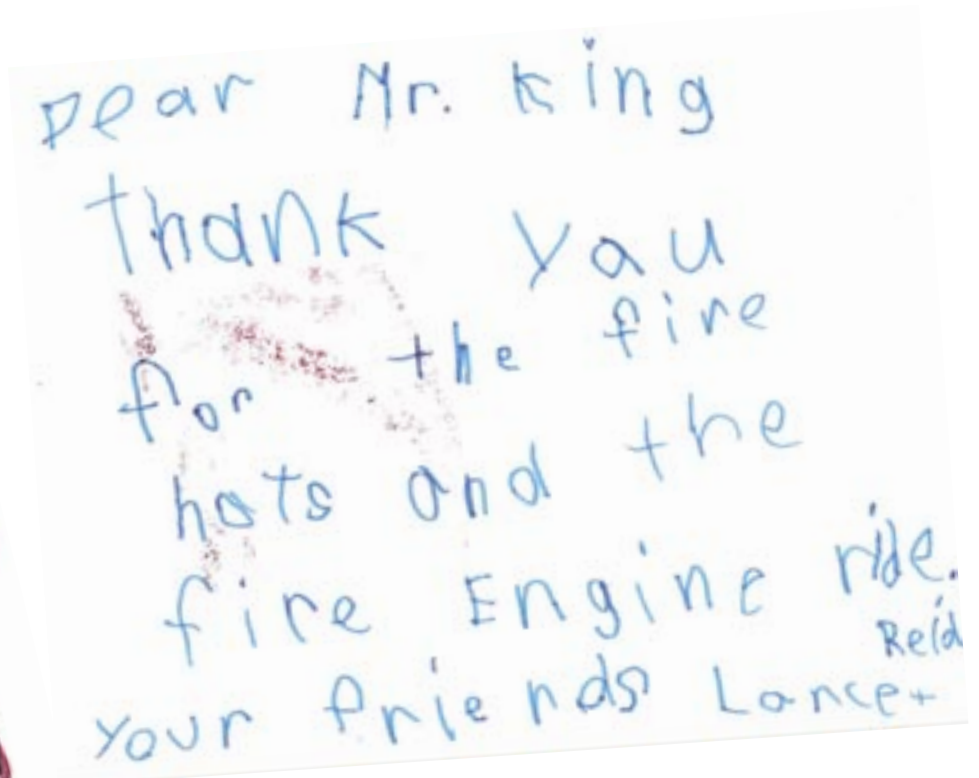 Dear Mr. King
Thank yau
for the fire
hats and the
fire Engine ride.
your friends Lance + Reid